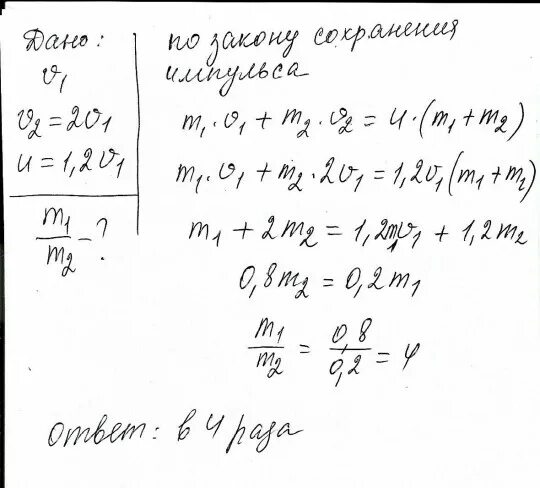 Дано:
υ₁
υ₂ = 2υ₁
u = 1,2υ₁
m₁/m₂ - ?
по закону сохранения
импульса
m₁ · υ₁ + m₂ · υ₂ = u · (m₁ + m₂)
m₁ · υ₁ + m₂ · 2υ₁ = 1,2υ₁(m₁ + m₂)
m₁ + 2m₂ = 1,2m₁υ₁ + 1,2m₂
0,8m₂ = 0,2m₁
m₁/m₂ = 0,8/0,2 = 4
ответ: в 4 раза